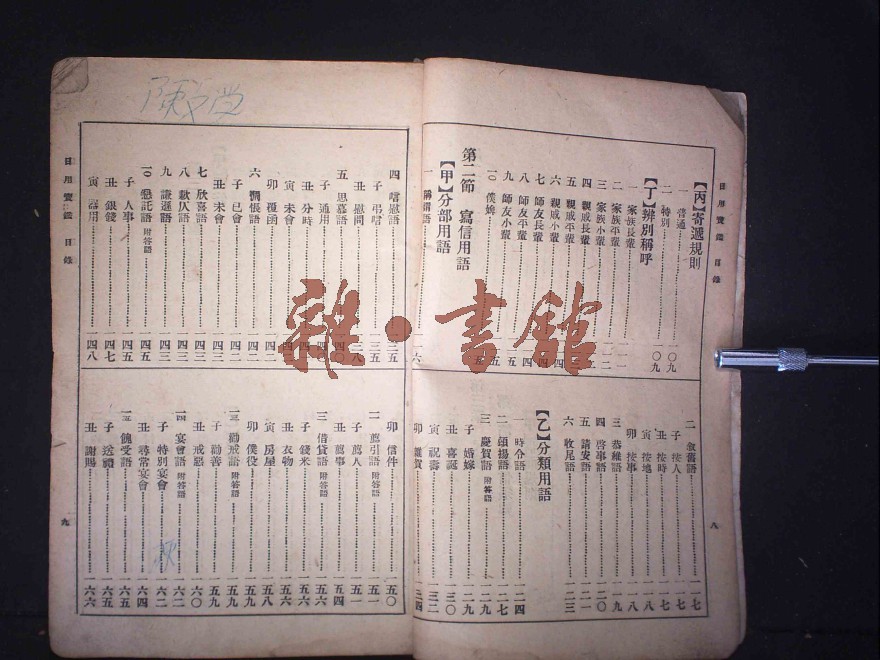 日用寶鑑 目錄
【丙】寄遞規則
一 普通
二 特別 一〇九
【丁】辨別稱呼 一〇九
一 家族長輩
二 家族平輩
三 家族小輩
四 親戚長輩
五 親戚平輩
六 親戚小輩
七 師友長輩
八 師友平輩
九 師友小輩
一〇 僕婢
第二節 寫信用語
【甲】分部用語
一 稱謂語
二 敘舊語 一一七
子 按人 一一七
丑 按時 一一七
寅 按地 一一八
卯 按事 一一八
三 恭維語 一一九
四 啓事語 一二〇
五 請安語 一二一
六 收尾語 一二三
【乙】分類用語
一 時令語 一二四
二 頌揚語 一二七
三 慶賀語 附答語 一二九
子 婚嫁 一二九
丑 喜誕 一三〇
寅 祝壽 一三二
卯 雜賀 一三四
八
陳
四 唁慰語 一三五
子 弔唁 一三五
丑 慰問 一三八
五 思慕語 一四〇
子 通用
丑 分時
寅 未會
卯 覆函 一四二
六 惆悵語 一四二
子 已會 一四二
丑 未會 一四三
七 欣喜語 一四三
八 歉仄語 一四三
九 謙遜語 一四三
一〇 懇託語 附答語 一四五
子 人事 一四五
丑 銀錢 一四七
寅 器用 一四八
卯 信件 一五〇
二 薦引語 附答語 一五一
子 薦人 一五一
丑 薦事 一五四
三 借貸語 附答語 一五六
子 錢米 一五六
丑 衣物 一五六
寅 房屋 一五八
卯 僕役 一五九
一三 勸戒語 附答語 一五九
子 勸善 一五九
丑 戒惡 一六〇
一四 宴會語 附答語 一六二
子 特別宴會 一六二
丑 尋常宴會 一六四
一五 餽受語 一六五
子 送禮 一六五
丑 謝賜 一六六
日用寶鑑 目錄
九
雜·書館